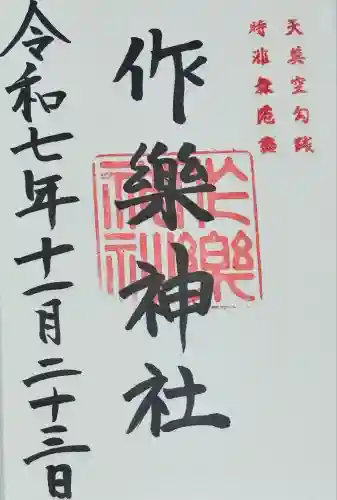 天莫空勾践
時非無范蠡
作樂神社
作樂神社
令和七年十一月二十三日